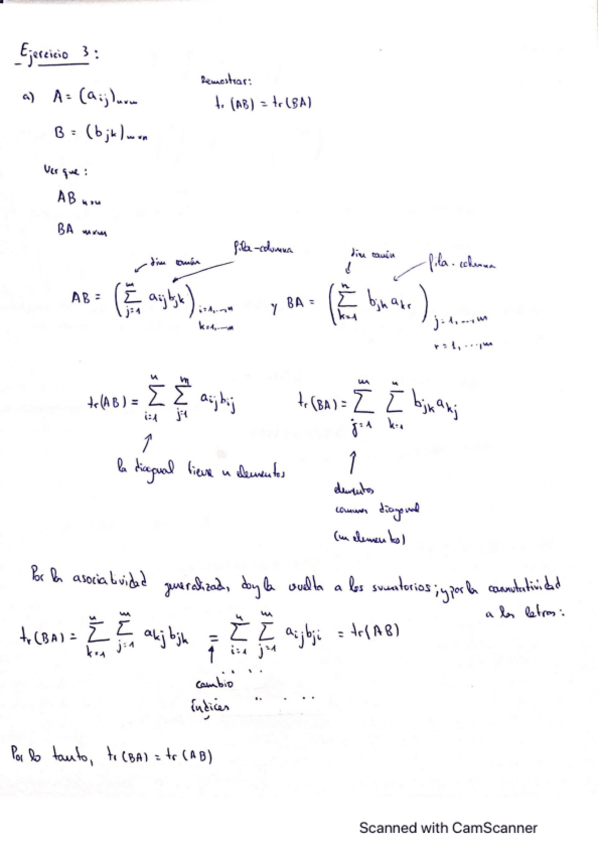 Ejercicio 3:
Demostrar:
a) A = (aij)nxm
tr(AB) = tr(BA)
B = (bjk)mxn
Ver que:
AB nxn
BA mxm
dim común
fila-columna
dim común
fila-columna
AB = (∑_{j=1}^{m} aij bjk) i=1,...,n k=1,...,n y BA = (∑_{k=1}^{n} bjk akr) j=1,...,m r=1,...,m
tr(AB) = ∑_{i=1}^{n} ∑_{j=1}^{m} aij bij
tr(BA) = ∑_{j=1}^{m} ∑_{k=1}^{n} bjk akj
↑
la diagonal tiene n elementos
↑
elementos
diagonal
(m elementos)
Por la asociatividad generalizada, doy la vuelta a los sumatorios; y por la conmutatividad
a las letras:
tr(BA) = ∑_{k=1}^{n} ∑_{j=1}^{m} akj bjk = ∑_{i=1}^{n} ∑_{j=1}^{m} aij bji = tr(AB)
↑
cambio
índices
Por lo tanto, tr(BA) = tr(AB)
Scanned with CamScanner